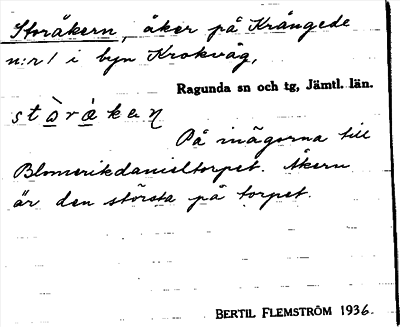 Storåkern, åker på Krångede
n:r 1 i byn Krokvåg,
Ragunda sn och tg, Jämtl. län.
På inägorna till
Blomerikdanieltorpet. Åkern
är den största på torpet.
BERTIL FLEMSTRÖM 1936.